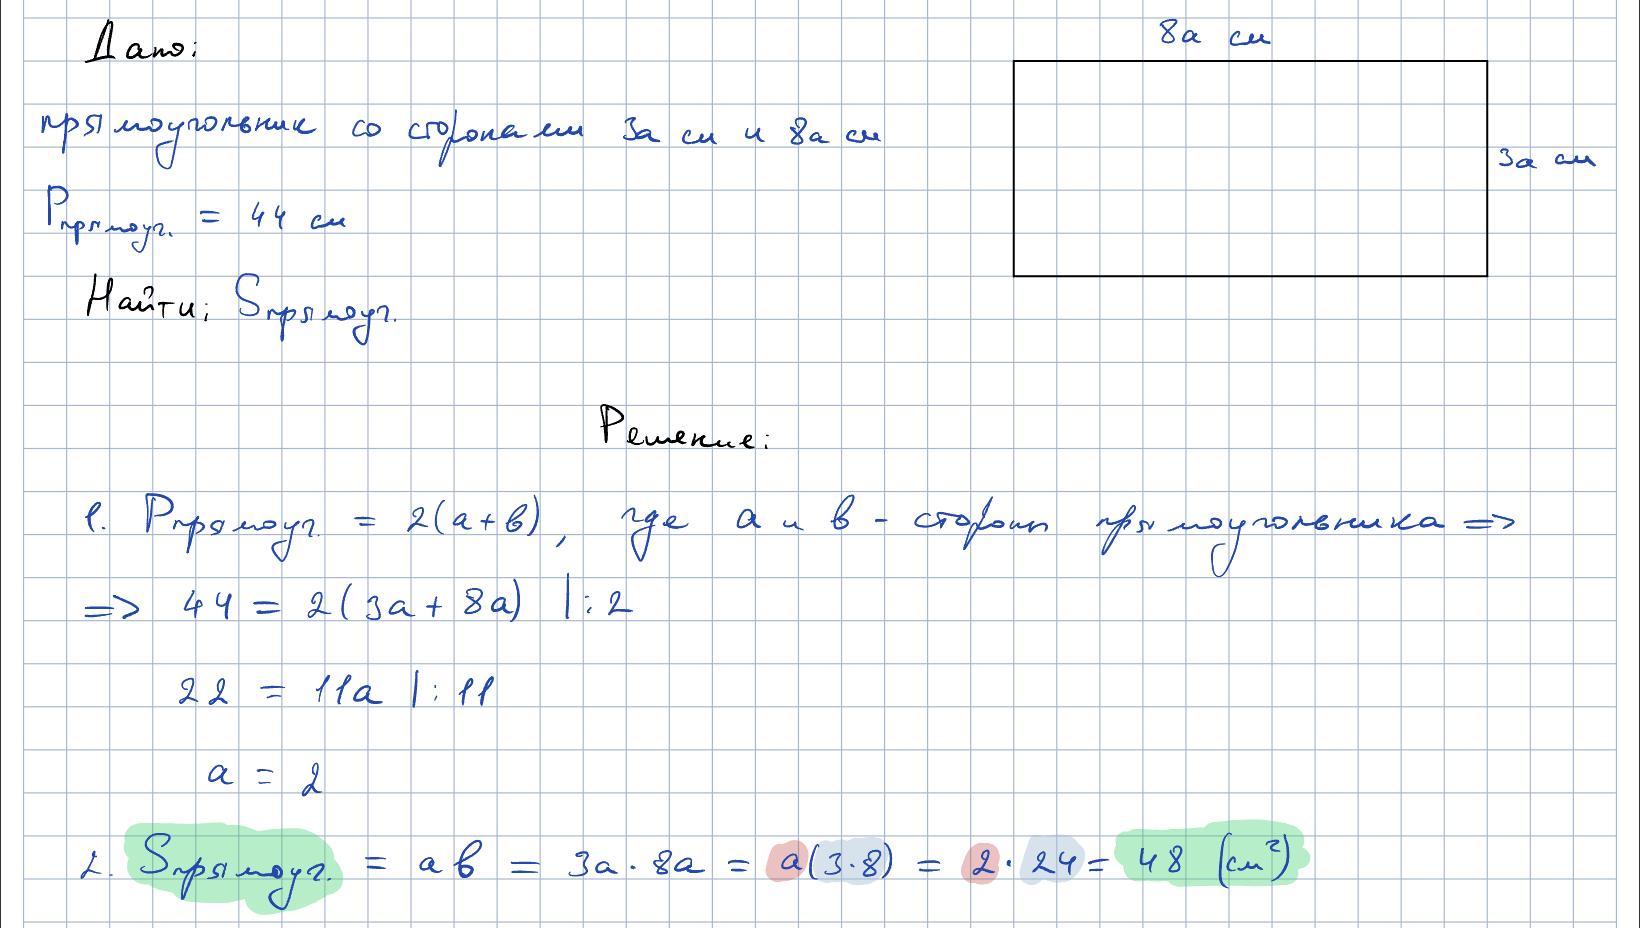 Дано:
8а см
прямоугольник со сторонами 3а см и 8а см
3а см
Pпрямоуг. = 44 см
Найти: Sпрямоуг.
Решение:
1. Pпрямоуг. = 2(а+в), где а и в - стороны прямоугольника =>
=> 44 = 2(3а + 8а) |:2
22 = 11а |:11
а = 2
2. Sпрямоуг. = ав = 3а · 8а = а(3·8) = 2 · 24 = 48 (см²)